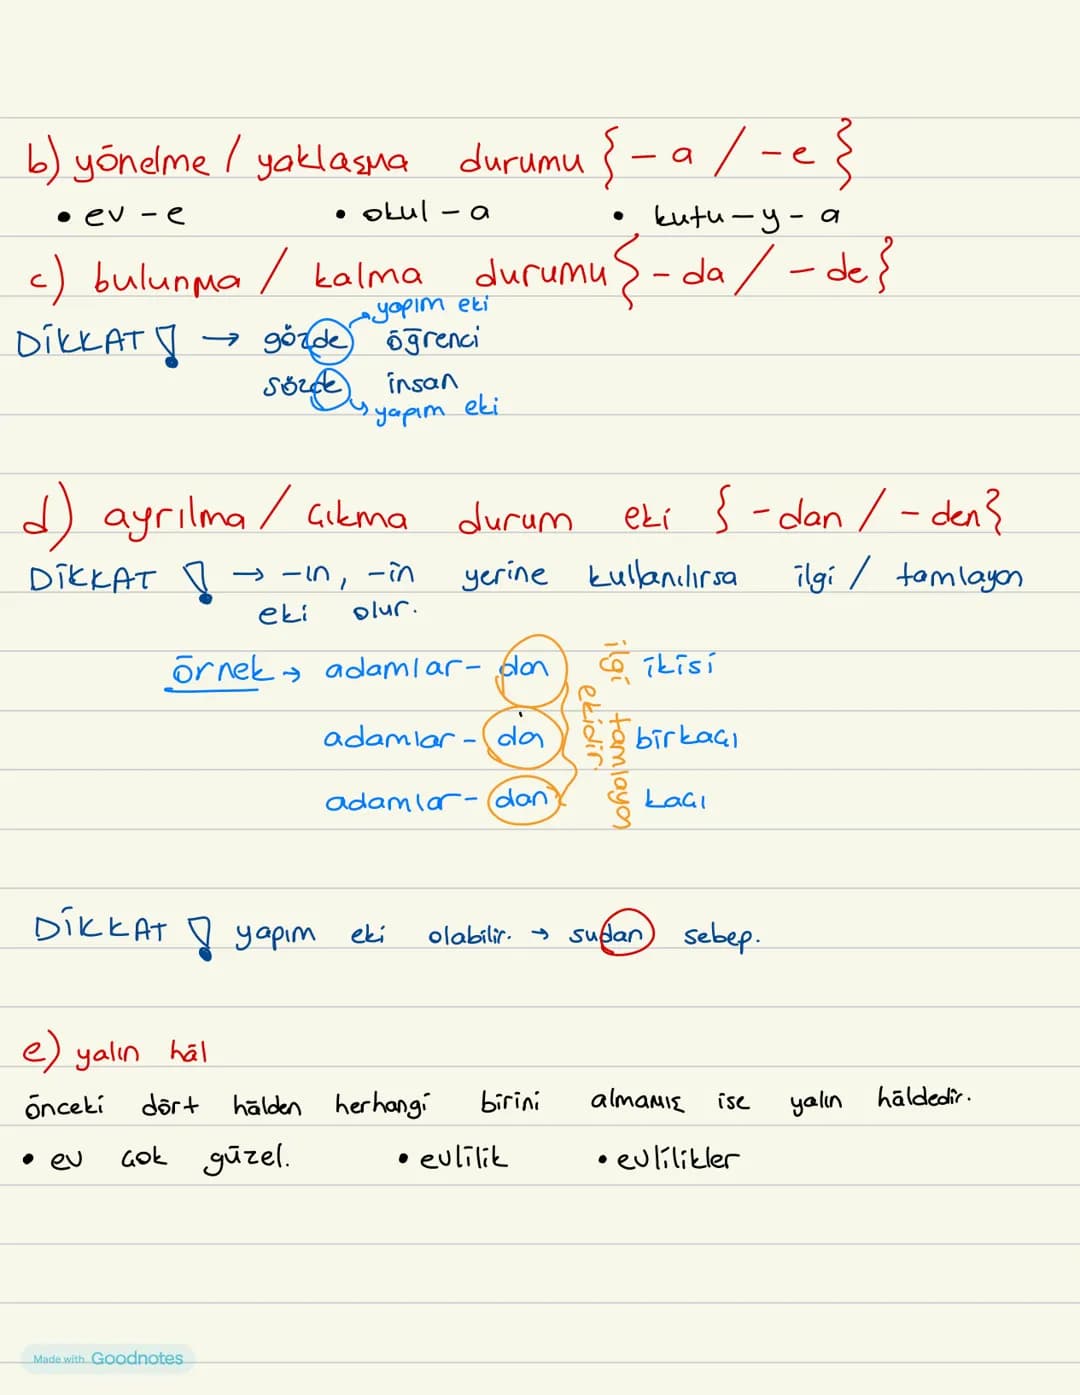 b) yönelme / yaklaşma durumu {-a / -e}
• ev -e • okul -a • kutu-y-a
c) bulunma / kalma durumu {-da / -de}
yapım eki
DİKKAT ! → gözde öğrenci
sözde insan
yapım eki
d) ayrılma / çıkma durum eki {-dan / -den}
DİKKAT ! → -ın, -in yerine kullanılırsa ilgi / tamlayan
eki olur.
örnek → adamlar- dan ikisi
adamlar- dan birkaçı
adamlar- dan kaçı
ilgi tamlayan
ekidir.
DİKKAT ! yapım eki olabilir. → sudan sebep.
e) yalın hâl
önceki dört hâlden herhangi birini almamış ise yalın hâldedir.
• ev çok güzel. • evlilik • evlilikler
Made with Goodnotes